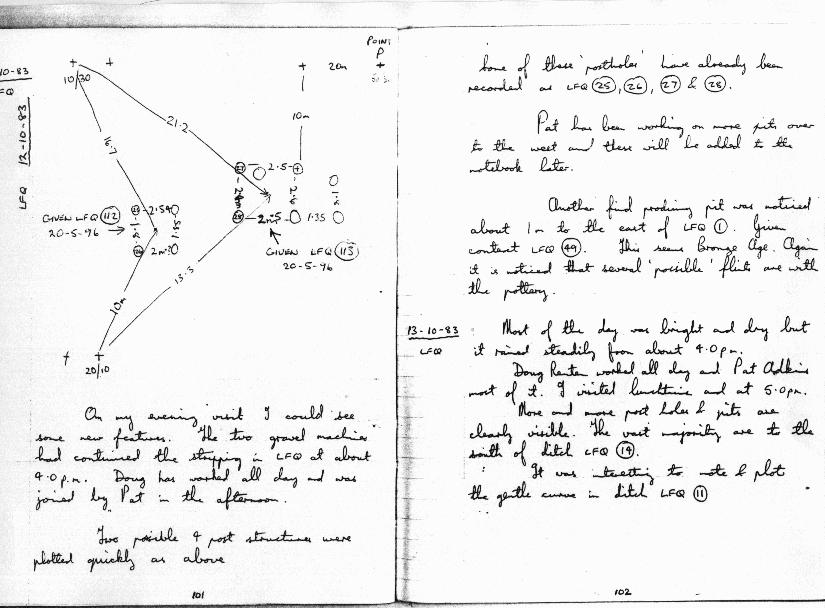 10-83
LFQ
12-10-83
LFQ
POINT
P
20m
10/30
10m
21.2
16.7
2.5
2.54
GIVEN LFQ (112)
20-5-96
1.35
2m
GIVEN LFQ (113)
20-5-96
13.5
10m
20/10
On my evening visit I could see
some new features. The two gravel machines
had continued the stripping in LFQ at about
4.0 p.m. Doug has worked all day and was
joined by Pat in the afternoon.
Two possible 4 post structures were
plotted quickly as above
101
Some of these 'postholes' have already been
recorded as LFQ (25), (26), (27) & (28).
Pat has been working on more pits over
to the west and these will be added to the
notebook later.
Another find producing pit was noticed
about 1m to the east of LFQ (1). Given
context LFQ (49). This seems Bronze Age. Again
it is noticed that several 'possible' flints are with
the pottery.
13-10-83
LFQ
Most of the day was bright and dry but
it rained steadily from about 4.0pm.
Doug worked all day and Pat Adkins
most of it. I visited lunchtime and at 5.0pm.
More and more post holes & pits are
clearly visible. The vast majority are to the
south of ditch LFQ (19).
It was interesting to note & plot
the gentle curve in ditch LFQ (11)
102